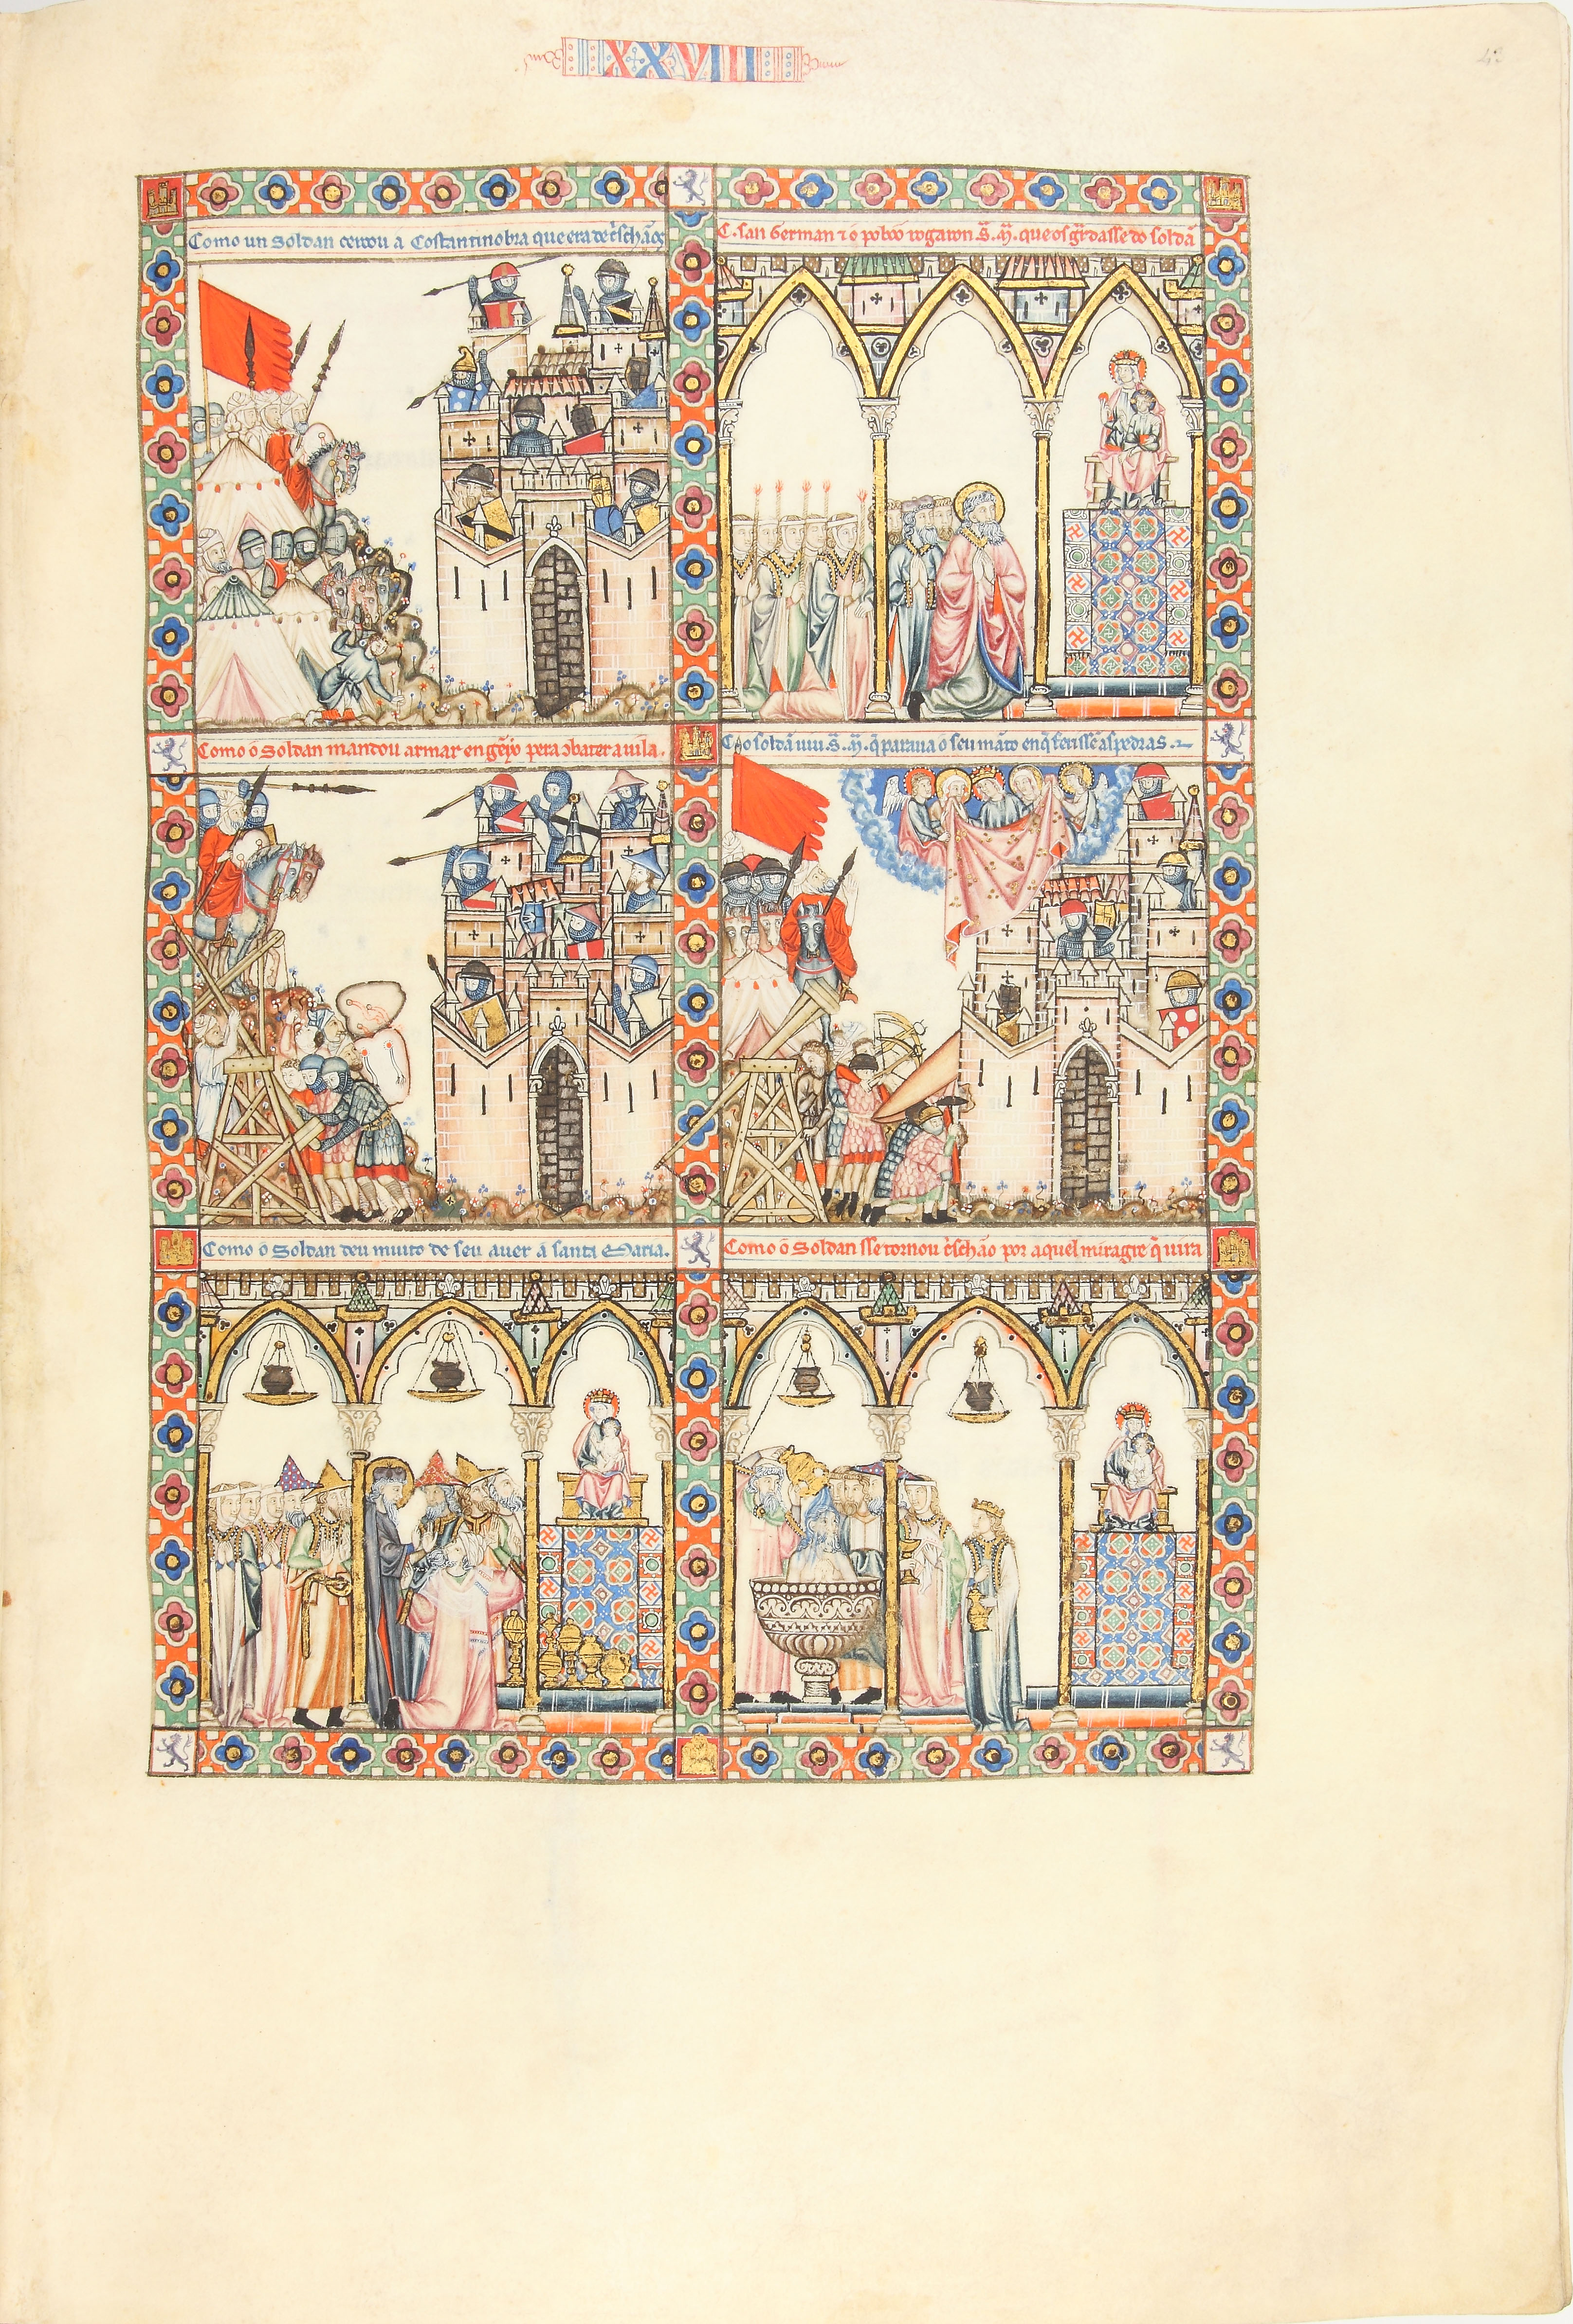 XXVIII
Como un Soldan cercou a Costantinobra que era de cͥschãos
C. san German ⁊ o poboo rogaron .S̃.M̃. que os gͣrdasse do soldã
Como o Soldan mandou armar engẽyos pera ↄbater a uila.
C̃ o soldã uiu .S̃.M̃. q̃ paraua o seu mãto en q̃ ferissẽ as pedras .~
Como o Soldan deu muito de seu auer a santa Maria.
Como o Soldan sse tornou cͥschão por aquel miragre q̃ uira